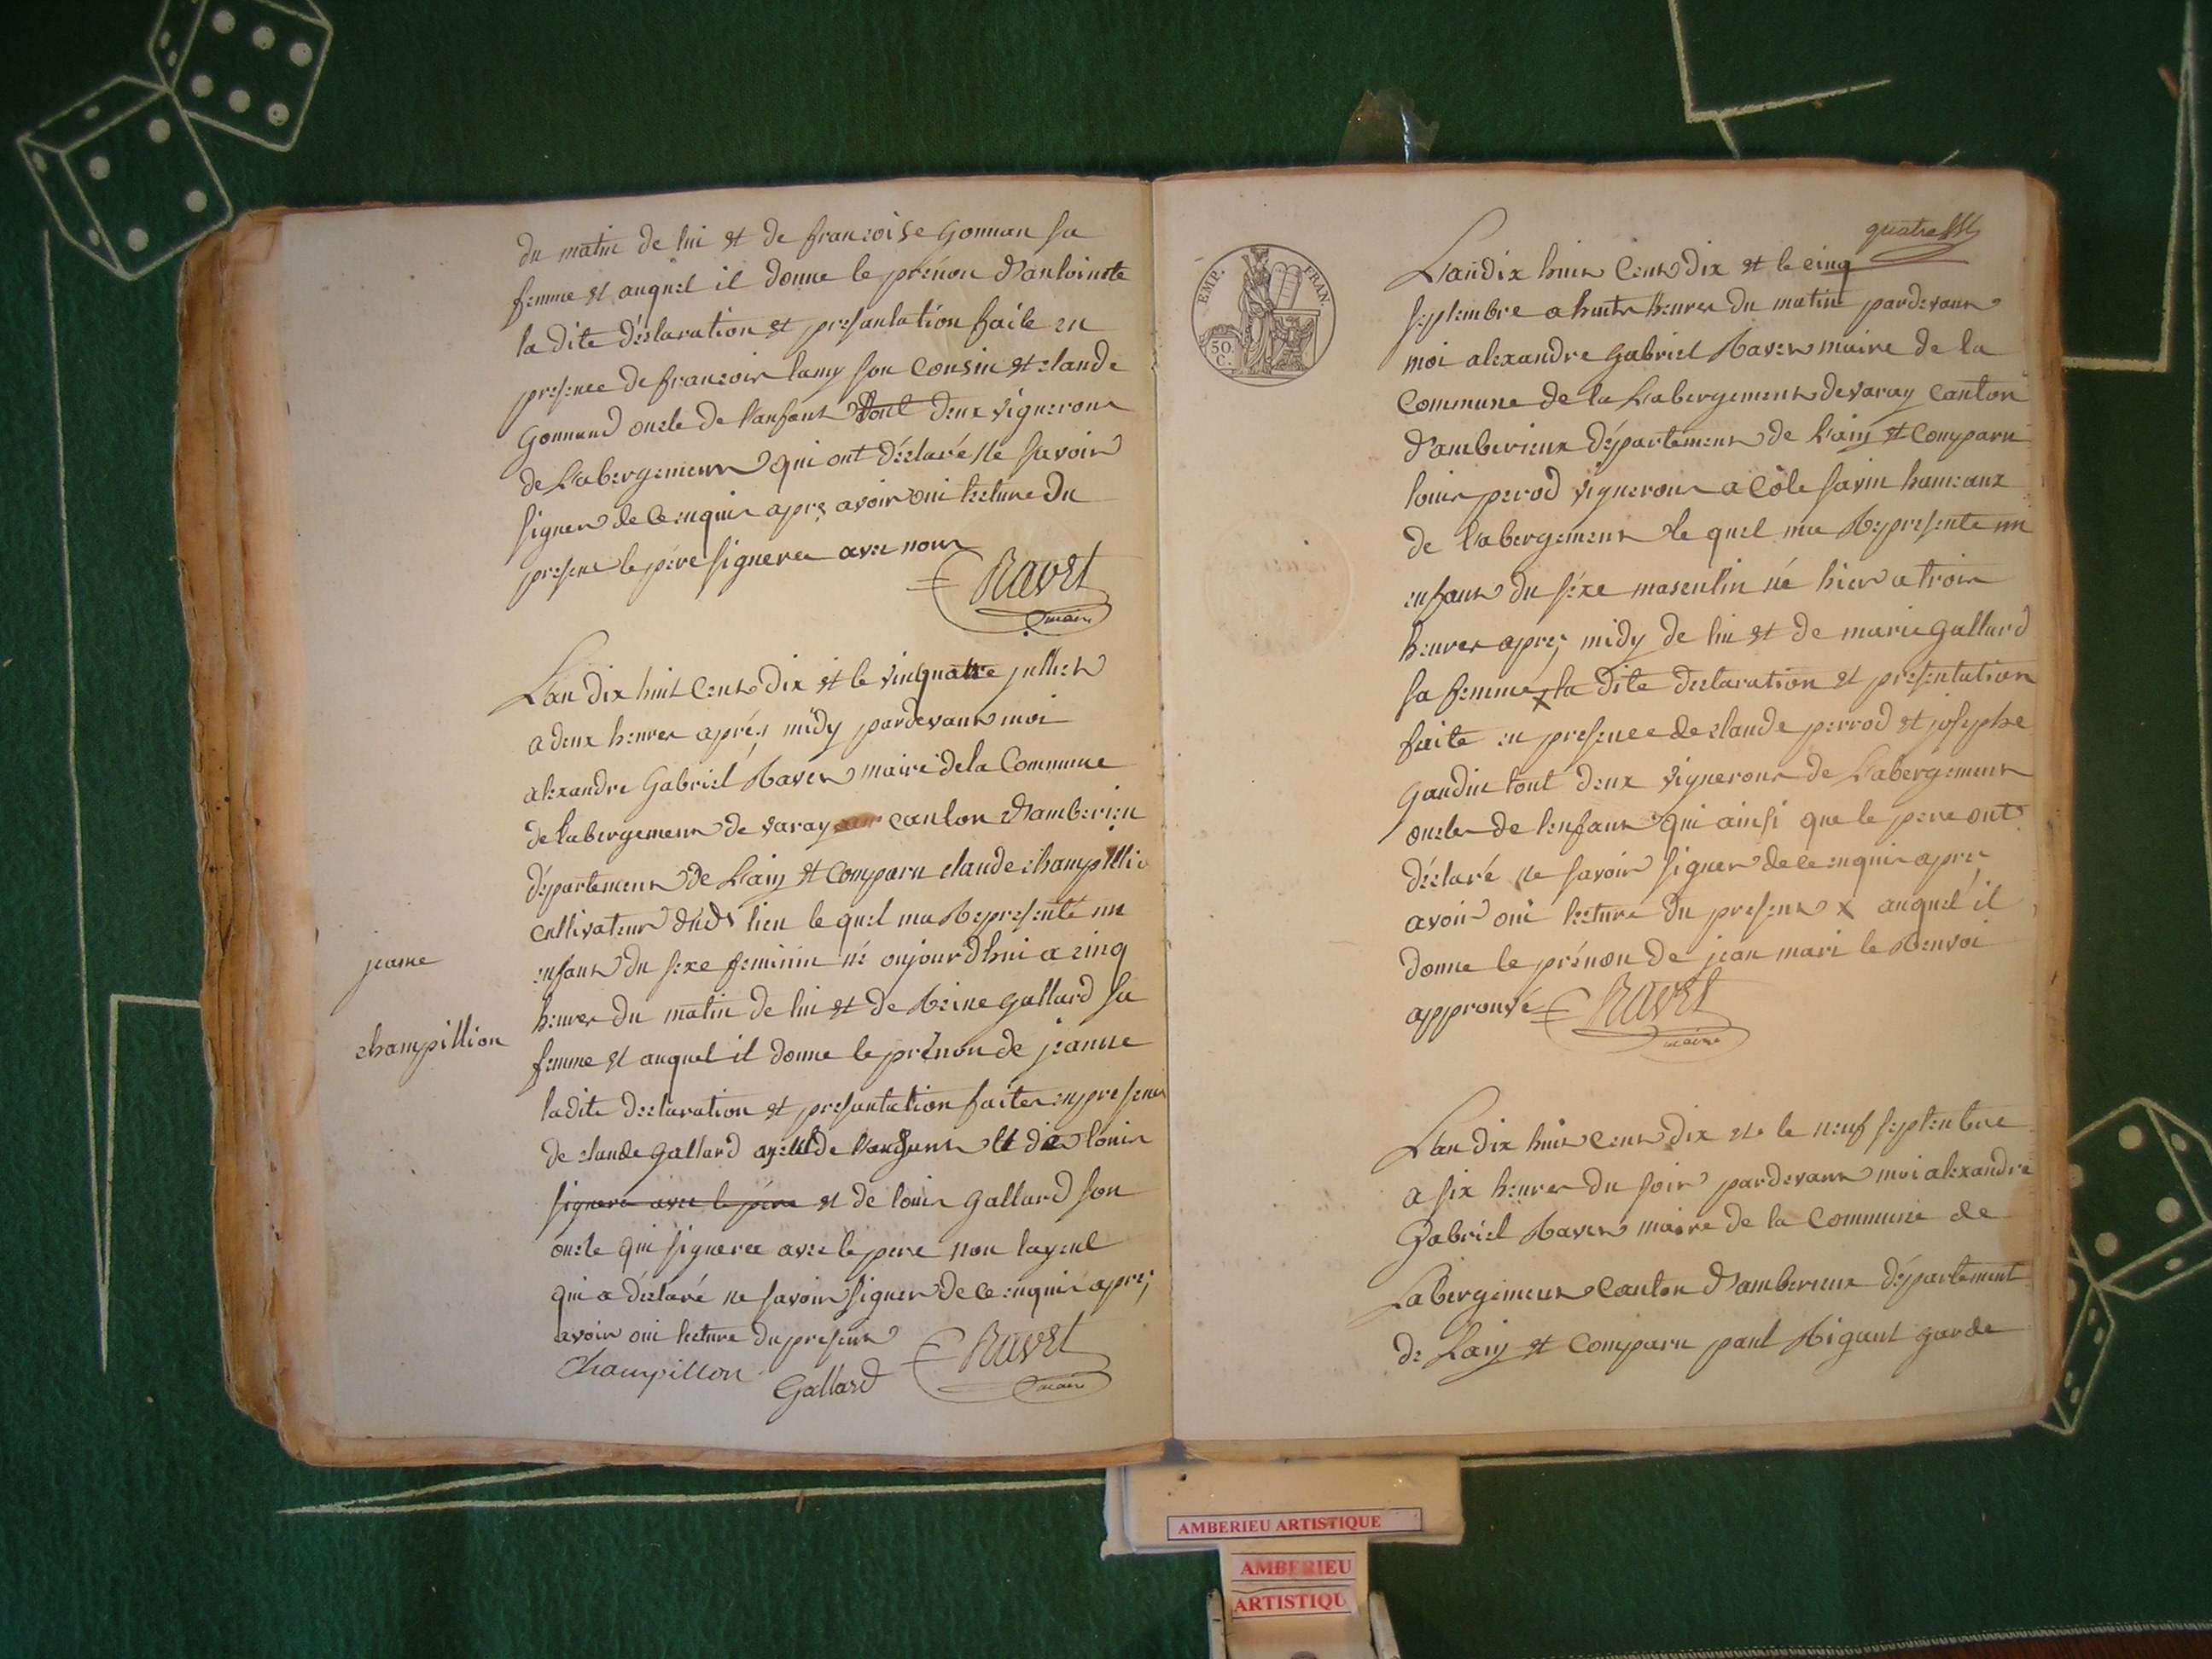 du matin de lui et de francoise gonnan sa
femme et auquel il donne le prénon d'antoinete
la dite déclaration et presantation faite en
presence de francois lamy son cousin et claude
Gonnand oncle de l'anfant tout deux vignerons
de L'abergement qui ont déclaré ne savoir
signer de ce enquis après avoir oui lecture du
present le père signeree avec nous
Ravet
maire
L'an dix huit cent dix et le vinquatre julliet
a deux heures après midy pardevant moi
alexandre Gabriel Ravet maire de la Commune
de l'abergement de varay canton d'amberieu
département de L'ain et Comparu claude champillio
cultivateur dud lieu le quel ma Representé un
enfant du sexe feminin né oujourdhui a cinq
heures du matin de lui et de Reine gallard sa
femme et auquel il donne le prénon de jeanne
ladite declaration et presantation faites en presence
de claude gallard ayeul de l'anfant et de louis
signera avec le père et de louis gallard son
oncle qui signeree avec le pere non layeul
qui a déclaré ne savoir signer de ce enquis après
avoir oui lecture du present
Champillon
Gallard
Ravet
maire
jeanne
champillion
EMP. FRAN.
50 C.
quatre
L'an dix huit Cent dix et le cinq
septembre a huit heures du matin pardevant
moi alexandre gabriel Ravet maire de la
Commune de la L'abergement de varay Canton
d'amberieux département de L'ain et Comparu
louis perod vigneron a Côte savin hameaux
de l'abergement le quel ma Representé un
enfant du séxe masculin né hier a trois
heures après midy de lui et de marie gallard
sa femme x la dite declaration et presentation
faite en presence de claude perrod et josephe
gaudin tout deux vignerons de L'abergement
oncles de l'enfant qui ainsi que le pere ont
déclaré ne savoir signer de ce enquis après
avoir oui lecture du present x auquel il
donne le prénon de jean mari le Renvoi
approuvé
Ravet
maire
L'an dix huit cent dix et le neuf septembre
a six heures du soir pardevant moi alexandre
Gabriel Ravet maire de la Commune de
Labergement Canton d'amberieux département
de L'ain et Comparu paul Rigaut garde
AMBERIEU ARTISTIQUE
AMBERIEU
ARTISTIQU